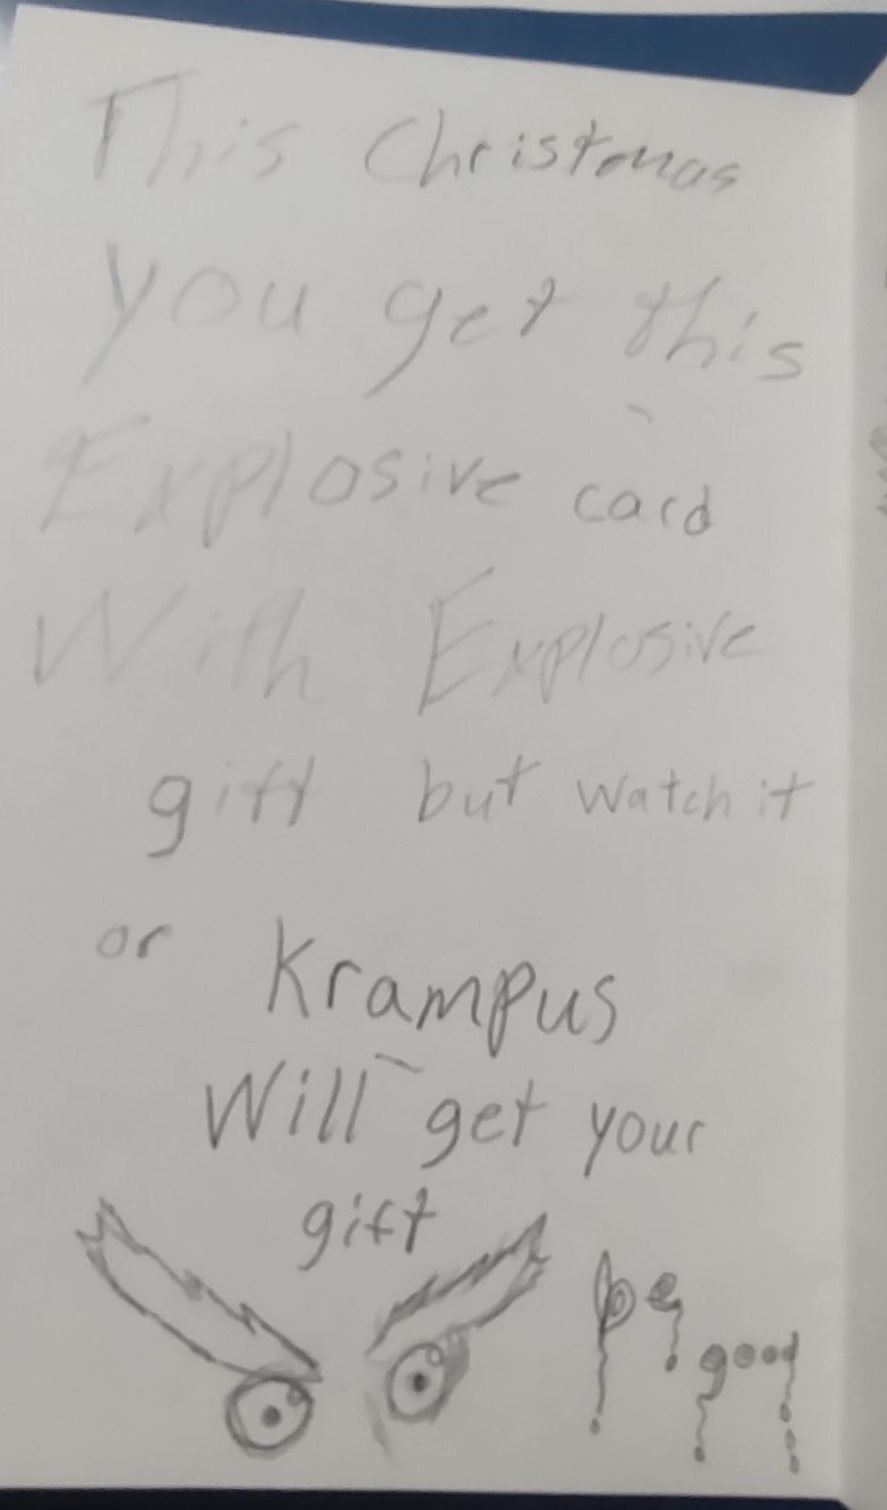 This Christmas
you get this
Explosive card
With Explosive
gift but watch it
or Krampus
Will get your
gift
be
good